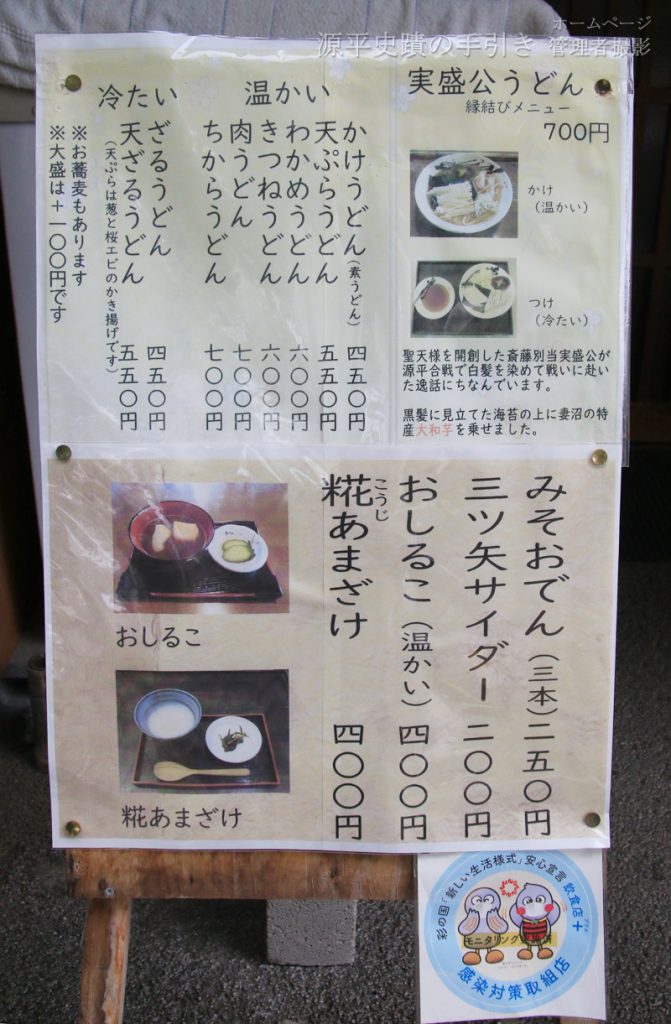 源平史蹟の手引き
ホームページ
管理者撮影
実盛公うどん
縁結びメニュー
700円
かけ
（温かい）
つけ
（冷たい）
聖天様を開創した斎藤別当実盛公が
源平合戦で白髪を染めて戦いに赴い
た逸話にちなんでいます。
黒髪に見立てた海苔の上に妻沼の特
産大和芋を乗せました。
温かい
かけうどん（素うどん） 四五〇円
天ぷらうどん 五五〇円
わかめうどん 六〇〇円
きつねうどん 六〇〇円
肉うどん 七〇〇円
ちからうどん 七〇〇円
冷たい
ざるうどん 四五〇円
天ざるうどん 五五〇円
（天ぷらは葱と桜エビのかき揚げです）
※お蕎麦もあります
※大盛は＋一〇〇円です
みそおでん（三本）二五〇円
三ツ矢サイダー 二〇〇円
おしるこ（温かい）四〇〇円
糀あまざけ 四〇〇円
こうじ
おしるこ
糀あまざけ
彩の国「新しい生活様式」安心宣言 飲食店＋
プラス
モニタリング
感染対策取組店